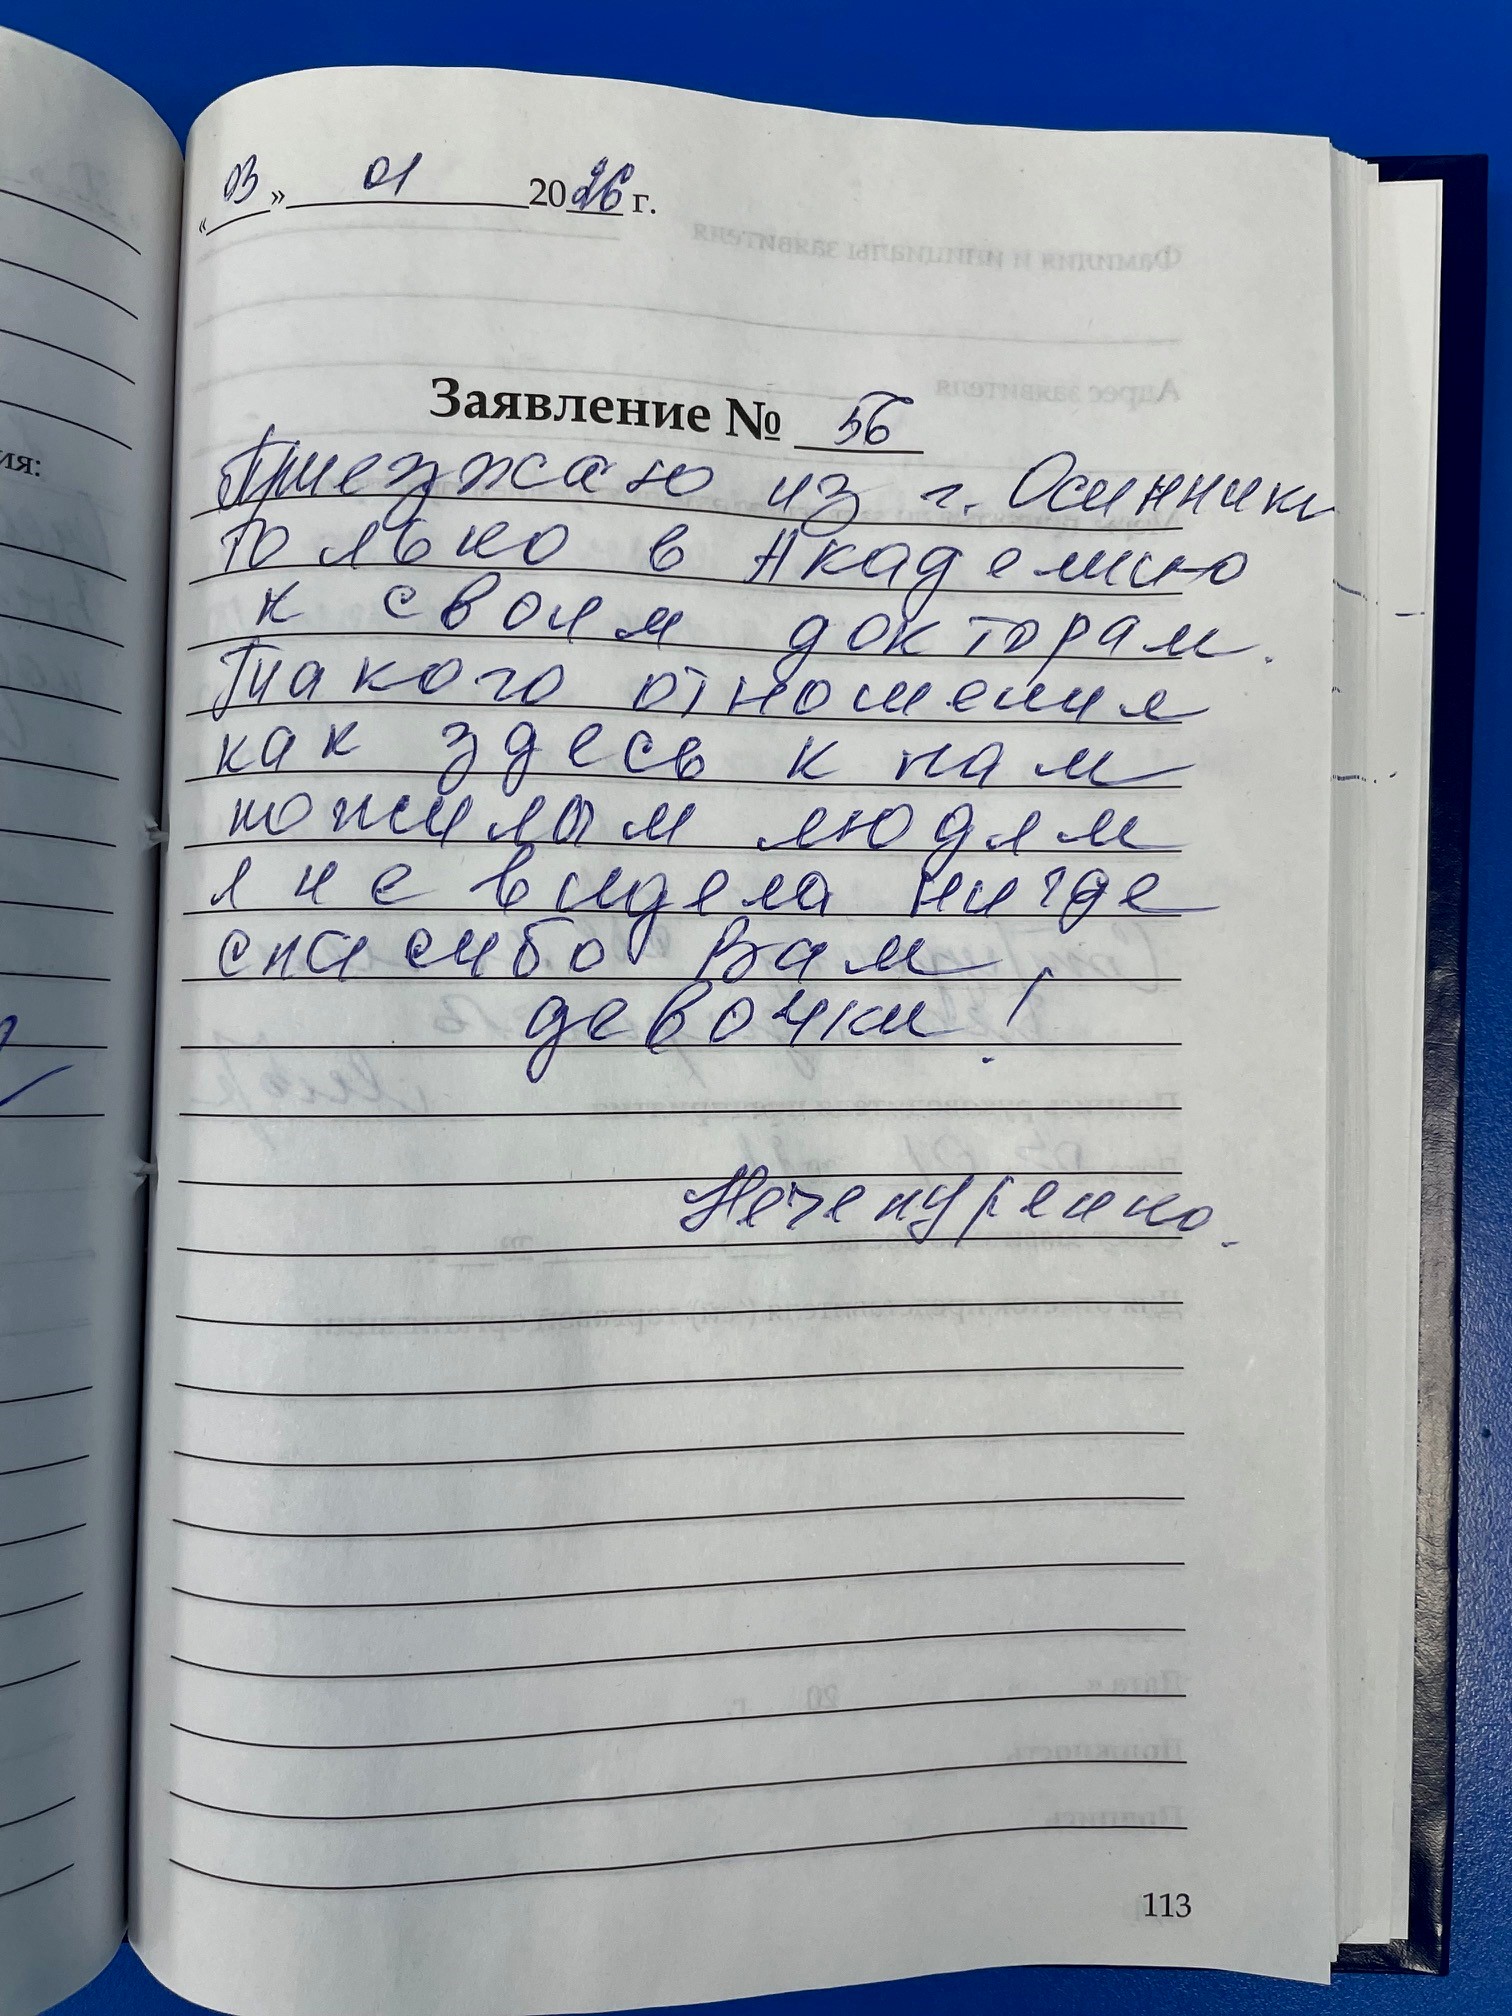 «03» 01 2026 г.
Заявление № 56
Приезжаю из г. Осинники
только в Академию
к своим докторам.
Такого отношения
как здесь к нам
пожилым людям
я не видела нигде
спасибо Вам,
девочки!
Нечепуренко.
113
ия: